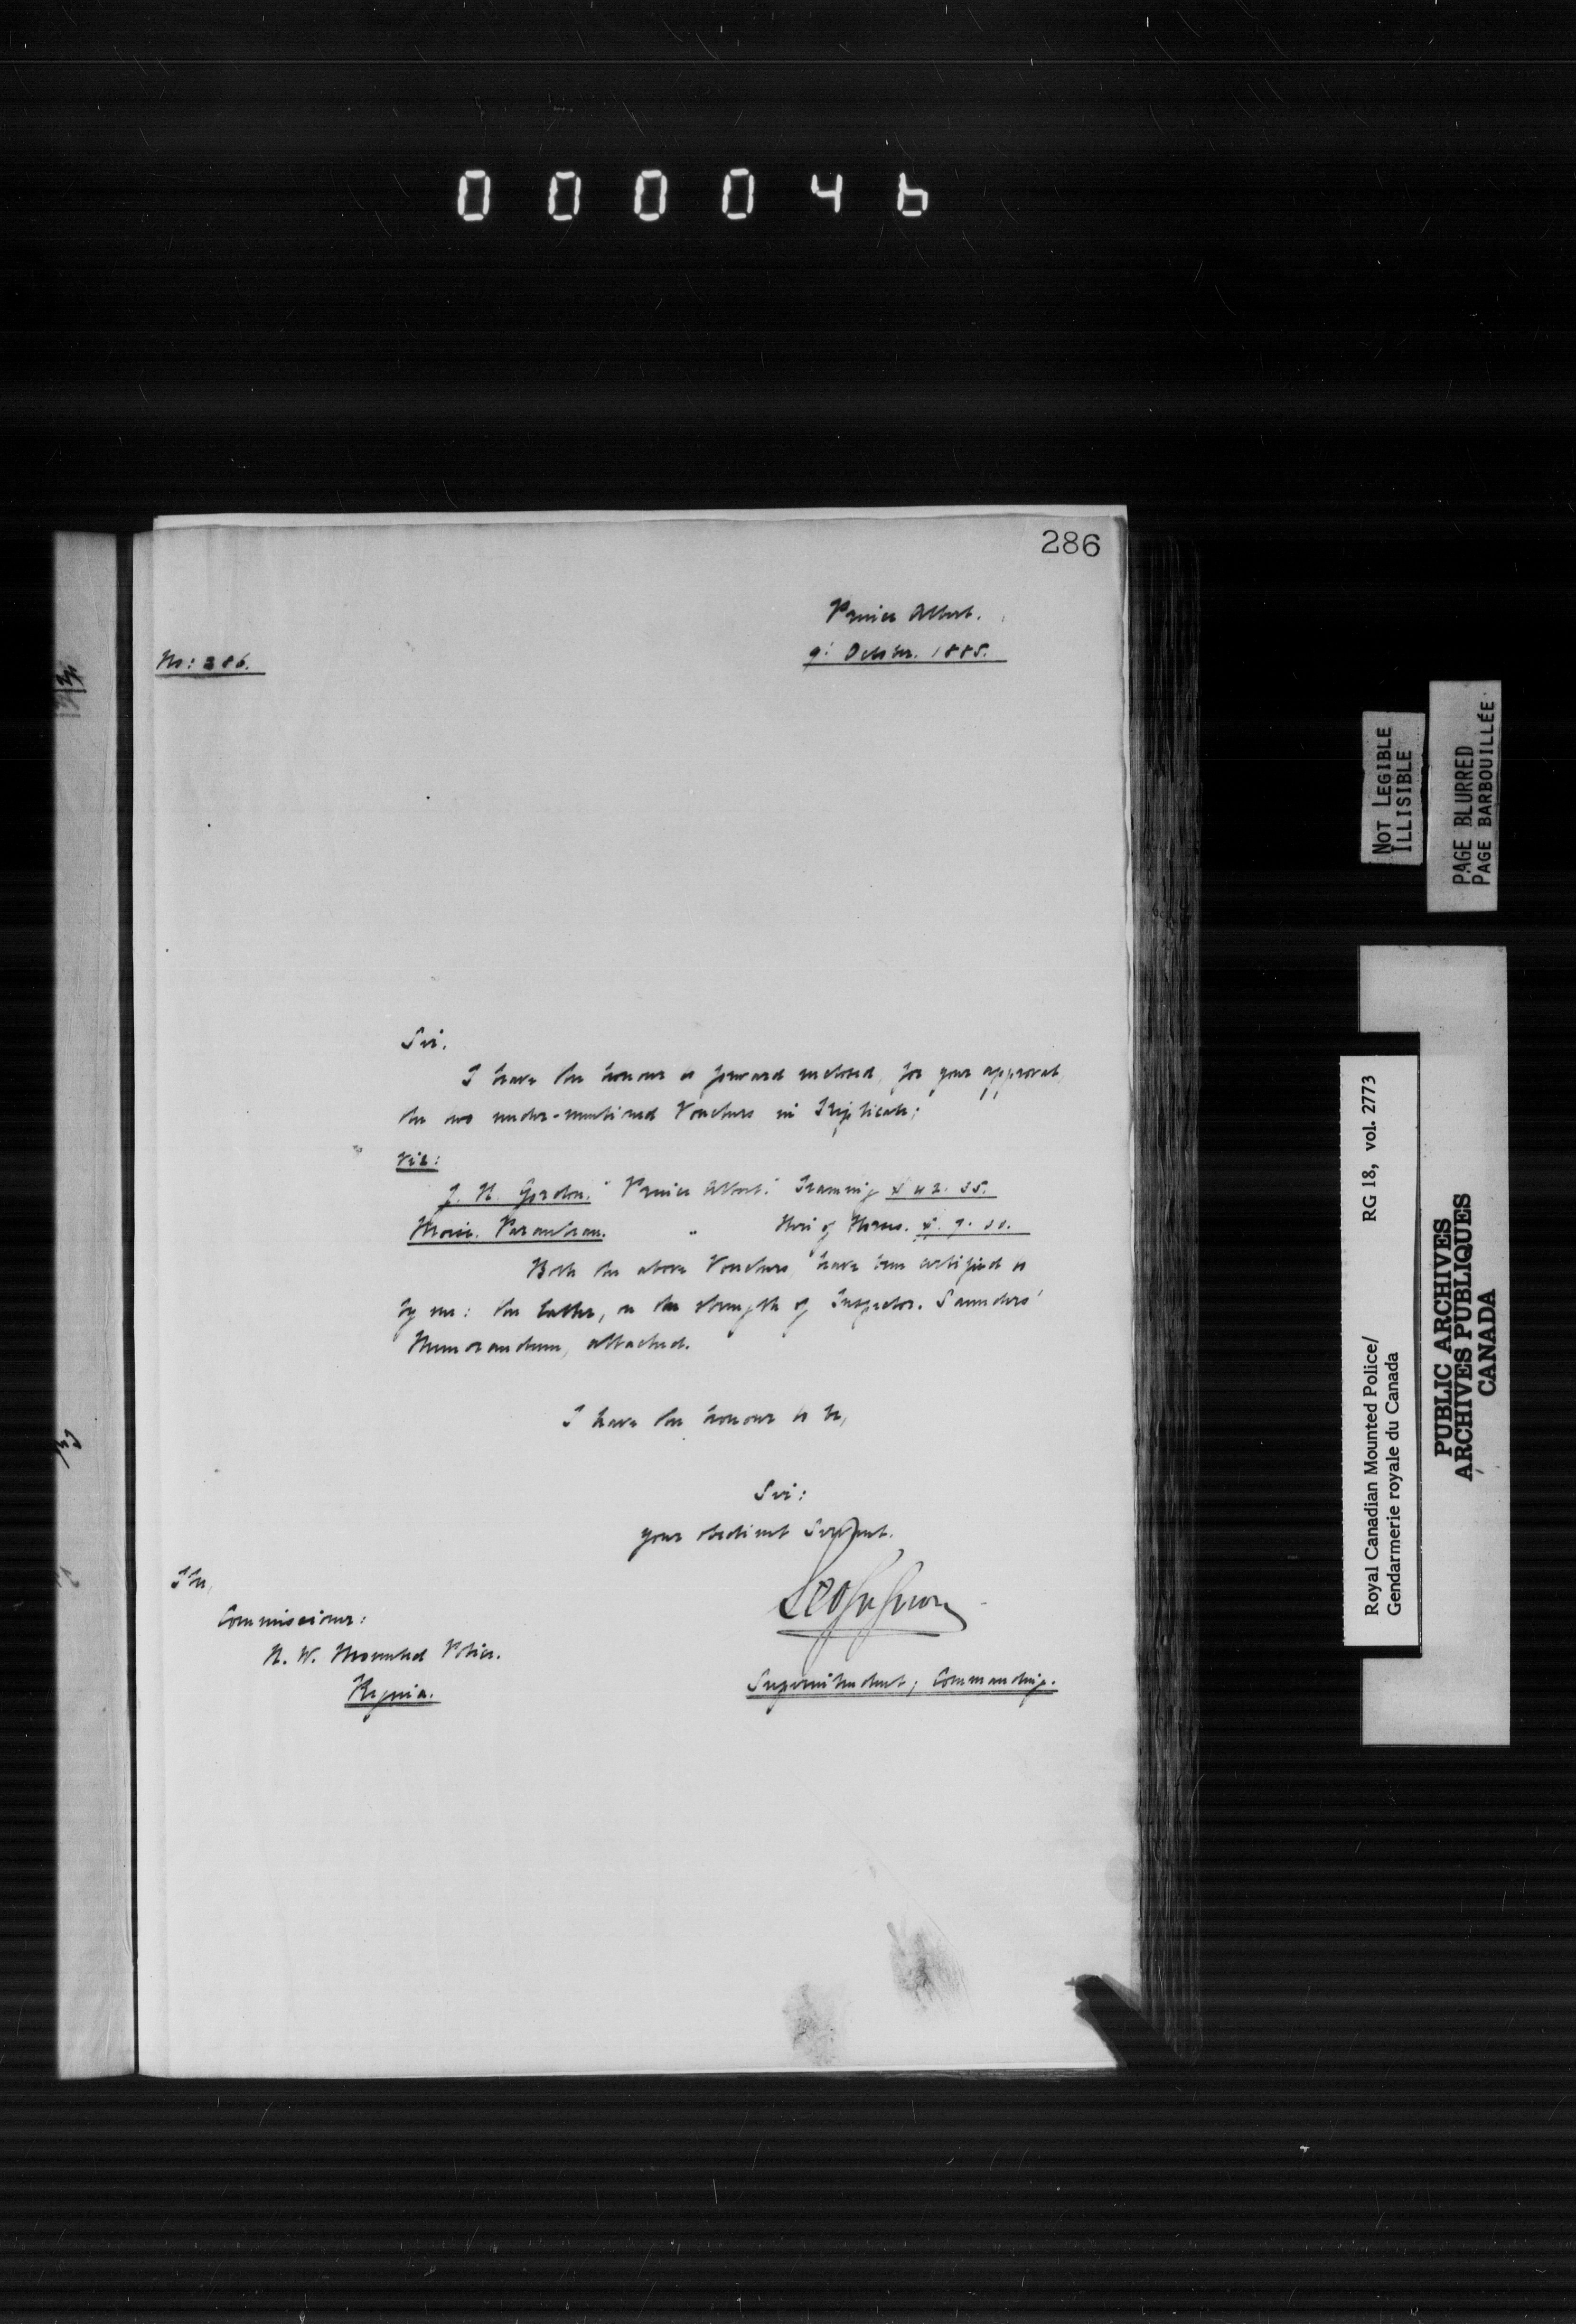 000046
286
Prince Albert.
9: October. 1885.
No: 286.
Sir.
I have the honour to forward enclosed, for your approval,
the two under-mentioned Vouchers in Triplicate;
viz:
Gordon. "Prince Albert." Teaming
" Hire of Horses.
Both the above Vouchers, have been certified to
by me: the latter, on the strength of Inspector. Saunders'
Memorandum, attached.
I have the honour to be,
Sir:
your obedient Servant.
The,
Commissioner:
N. W. Mounted Police.
Regina.
Superintendent; Commanding.
NOT LEGIBLE
ILLISIBLE
PAGE BLURRED
PAGE BARBOUILLÉE
Royal Canadian Mounted Police/ RG 18, vol. 2773
Gendarmerie royale du Canada
PUBLIC ARCHIVES
ARCHIVES PUBLIQUES
CANADA